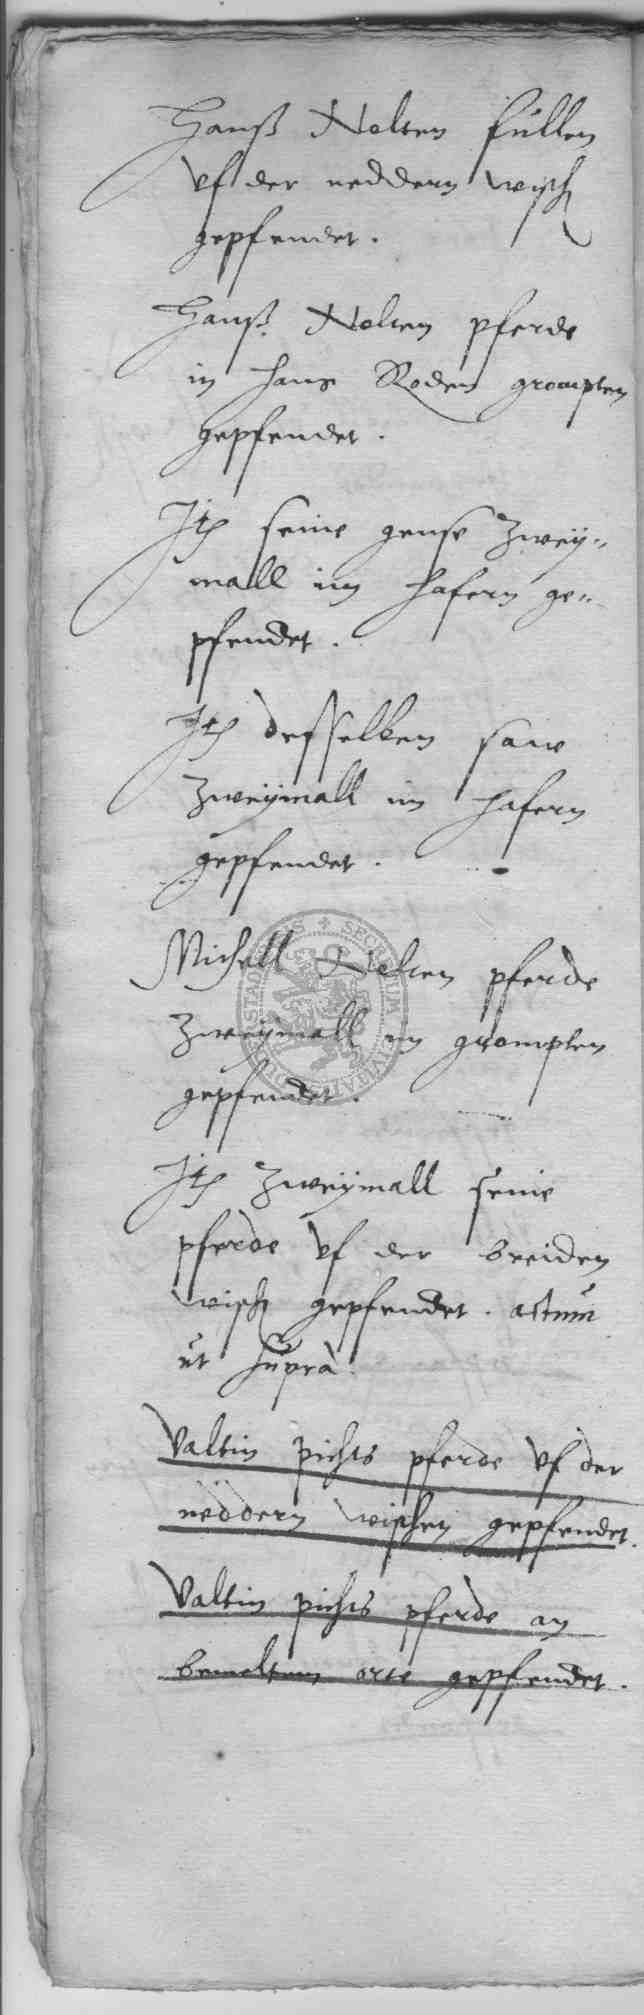 Hanß Nolten füllen
vf der neddern wisch
gepfendet.
Hanß Nolten pferde
in Hans Roden grompten
gepfendet.
Itz seine gense zweÿ-
mall im hafern ge-
pfendet.
Itz desselben saw
zweÿmall im hafern
gepfendet.
Michell Nolten pferde
zweÿmall im grompten
gepfendet.
Itz zweÿmall seine
pferde vf der breiden
wisch gepfendet. actum
ut supra.
Valtin pichts pferde vf der
neddern wischen gepfendet.
Valtin pichts pferde an
bemeltem orte gepfendet.
SECRETUM CIVITATIS